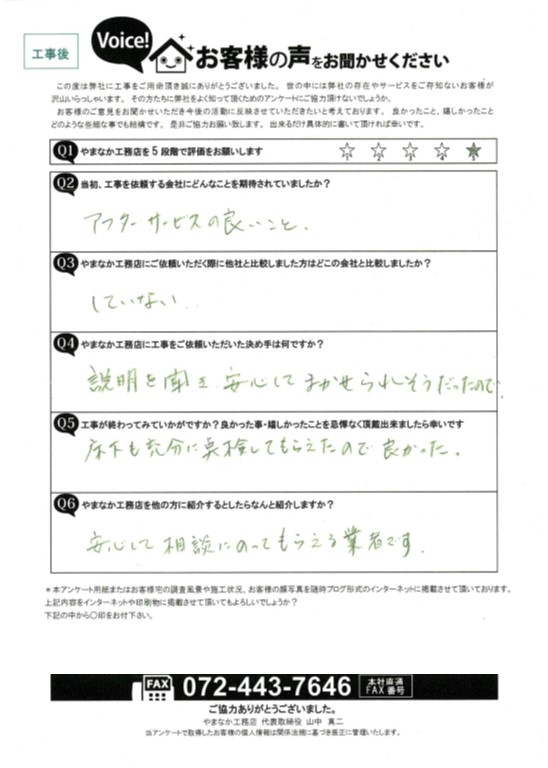 工事後
Voice!
お客様の声をお聞かせください
この度は弊社に工事をご用命頂き誠にありがとうございました。世の中には弊社の存在やサービスをご存知ないお客様が
沢山いらっしゃいます。その方たちに弊社をよく知って頂くためのアンケートにご協力頂けないでしょうか。
お客様のご意見をお聞かせいただき今後の活動に反映させていただきたいと考えております。良かったこと、嬉しかったこと
どのような些細な事でも結構です。是非ご協力お願い致します。出来るだけ具体的に書いて頂ければ幸いです。
Q1 やまなか工務店を5段階で評価をお願いします ☆1 ☆2 ☆3 ☆4 ★5
Q2 当初、工事を依頼する会社にどんなことを期待されていましたか？
アフターサービスの良いこと、
Q3 やまなか工務店にご依頼いただく際に他社と比較しました方はどこの会社と比較しましたか？
していない..
Q4 やまなか工務店に工事をご依頼いただいた決め手は何ですか？
説明を聞き、安心してまかせられそうだったので
Q5 工事が終わってみていかがですか？良かった事・嬉しかったことを忌憚なく頂戴出来ましたら幸いです
床下も充分に点検してもらえたので良かった。
Q6 やまなか工務店を他の方に紹介するとしたらなんと紹介しますか？
安心して相談にのってもらえる業者です.
＊本アンケート用紙またはお客様宅の調査風景や施工状況、お客様の顔写真を随時ブログ形式のインターネットに掲載させて頂いております。
上記内容をインターネットや印刷物に掲載させて頂いてもよろしいでしょうか？
下記の中から〇印をお付下さい。
FAX 072-443-7646 本社直通
FAX番号
ご協力ありがとうございました。
やまなか工務店 代表取締役 山中 真二
当アンケートで取得したお客様の個人情報は関係法規に基づき厳正に管理いたします。